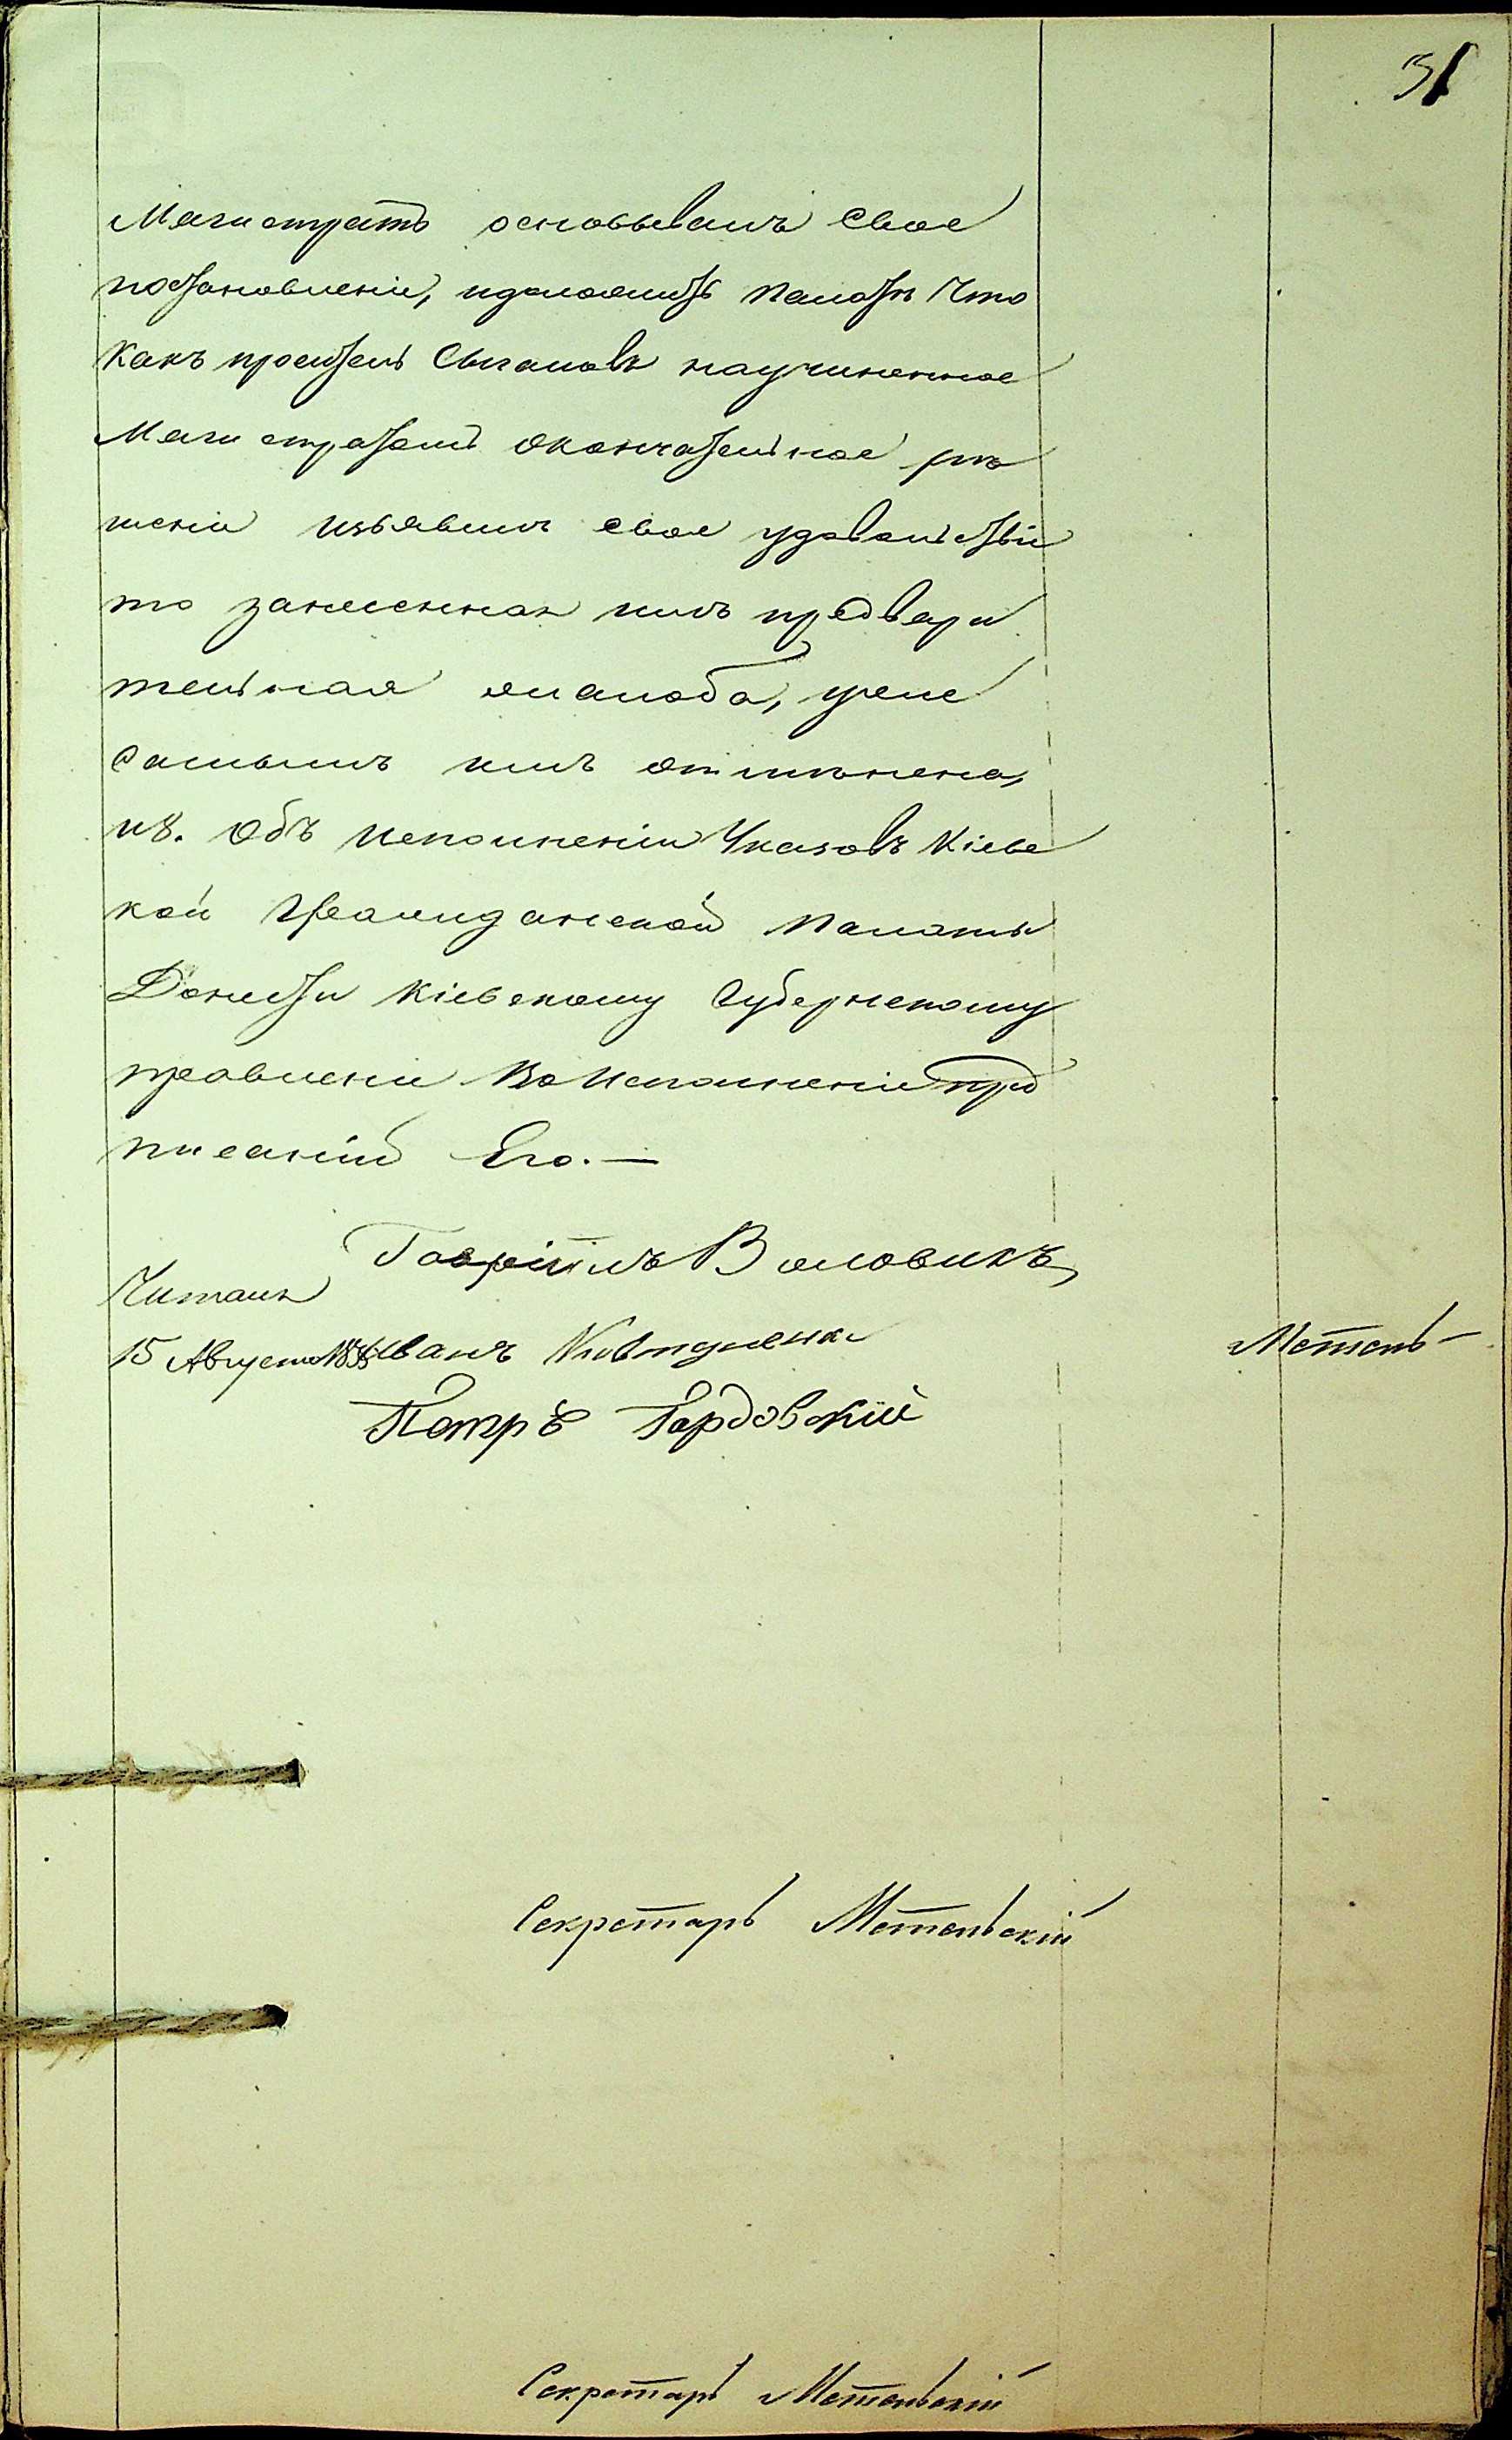 31
Магистратъ основывалъ свое
постановленіе, и доложить Палатѣ что
Какъ проситель Сыгаловъ на учиненное
Магистратомъ окончательное рѣ
шеніе изъявилъ свое удовольствіе
то занесенная имъ предвари
тельная жалоба, уже
самымъ имъ отмѣнена,
и 8. Объ исполненіи Указовъ Кіевс
кой Гражданской Палаты
Донести Кіевскому Губернскому
правленію во исполненіе пред
писаній Его. —
Гавріилъ Воловикъ
Читалъ
15 Августа Иванъ
Метель-
Петръ Гордовскій
Секретарь Метельскій
Секретарь Метельскій